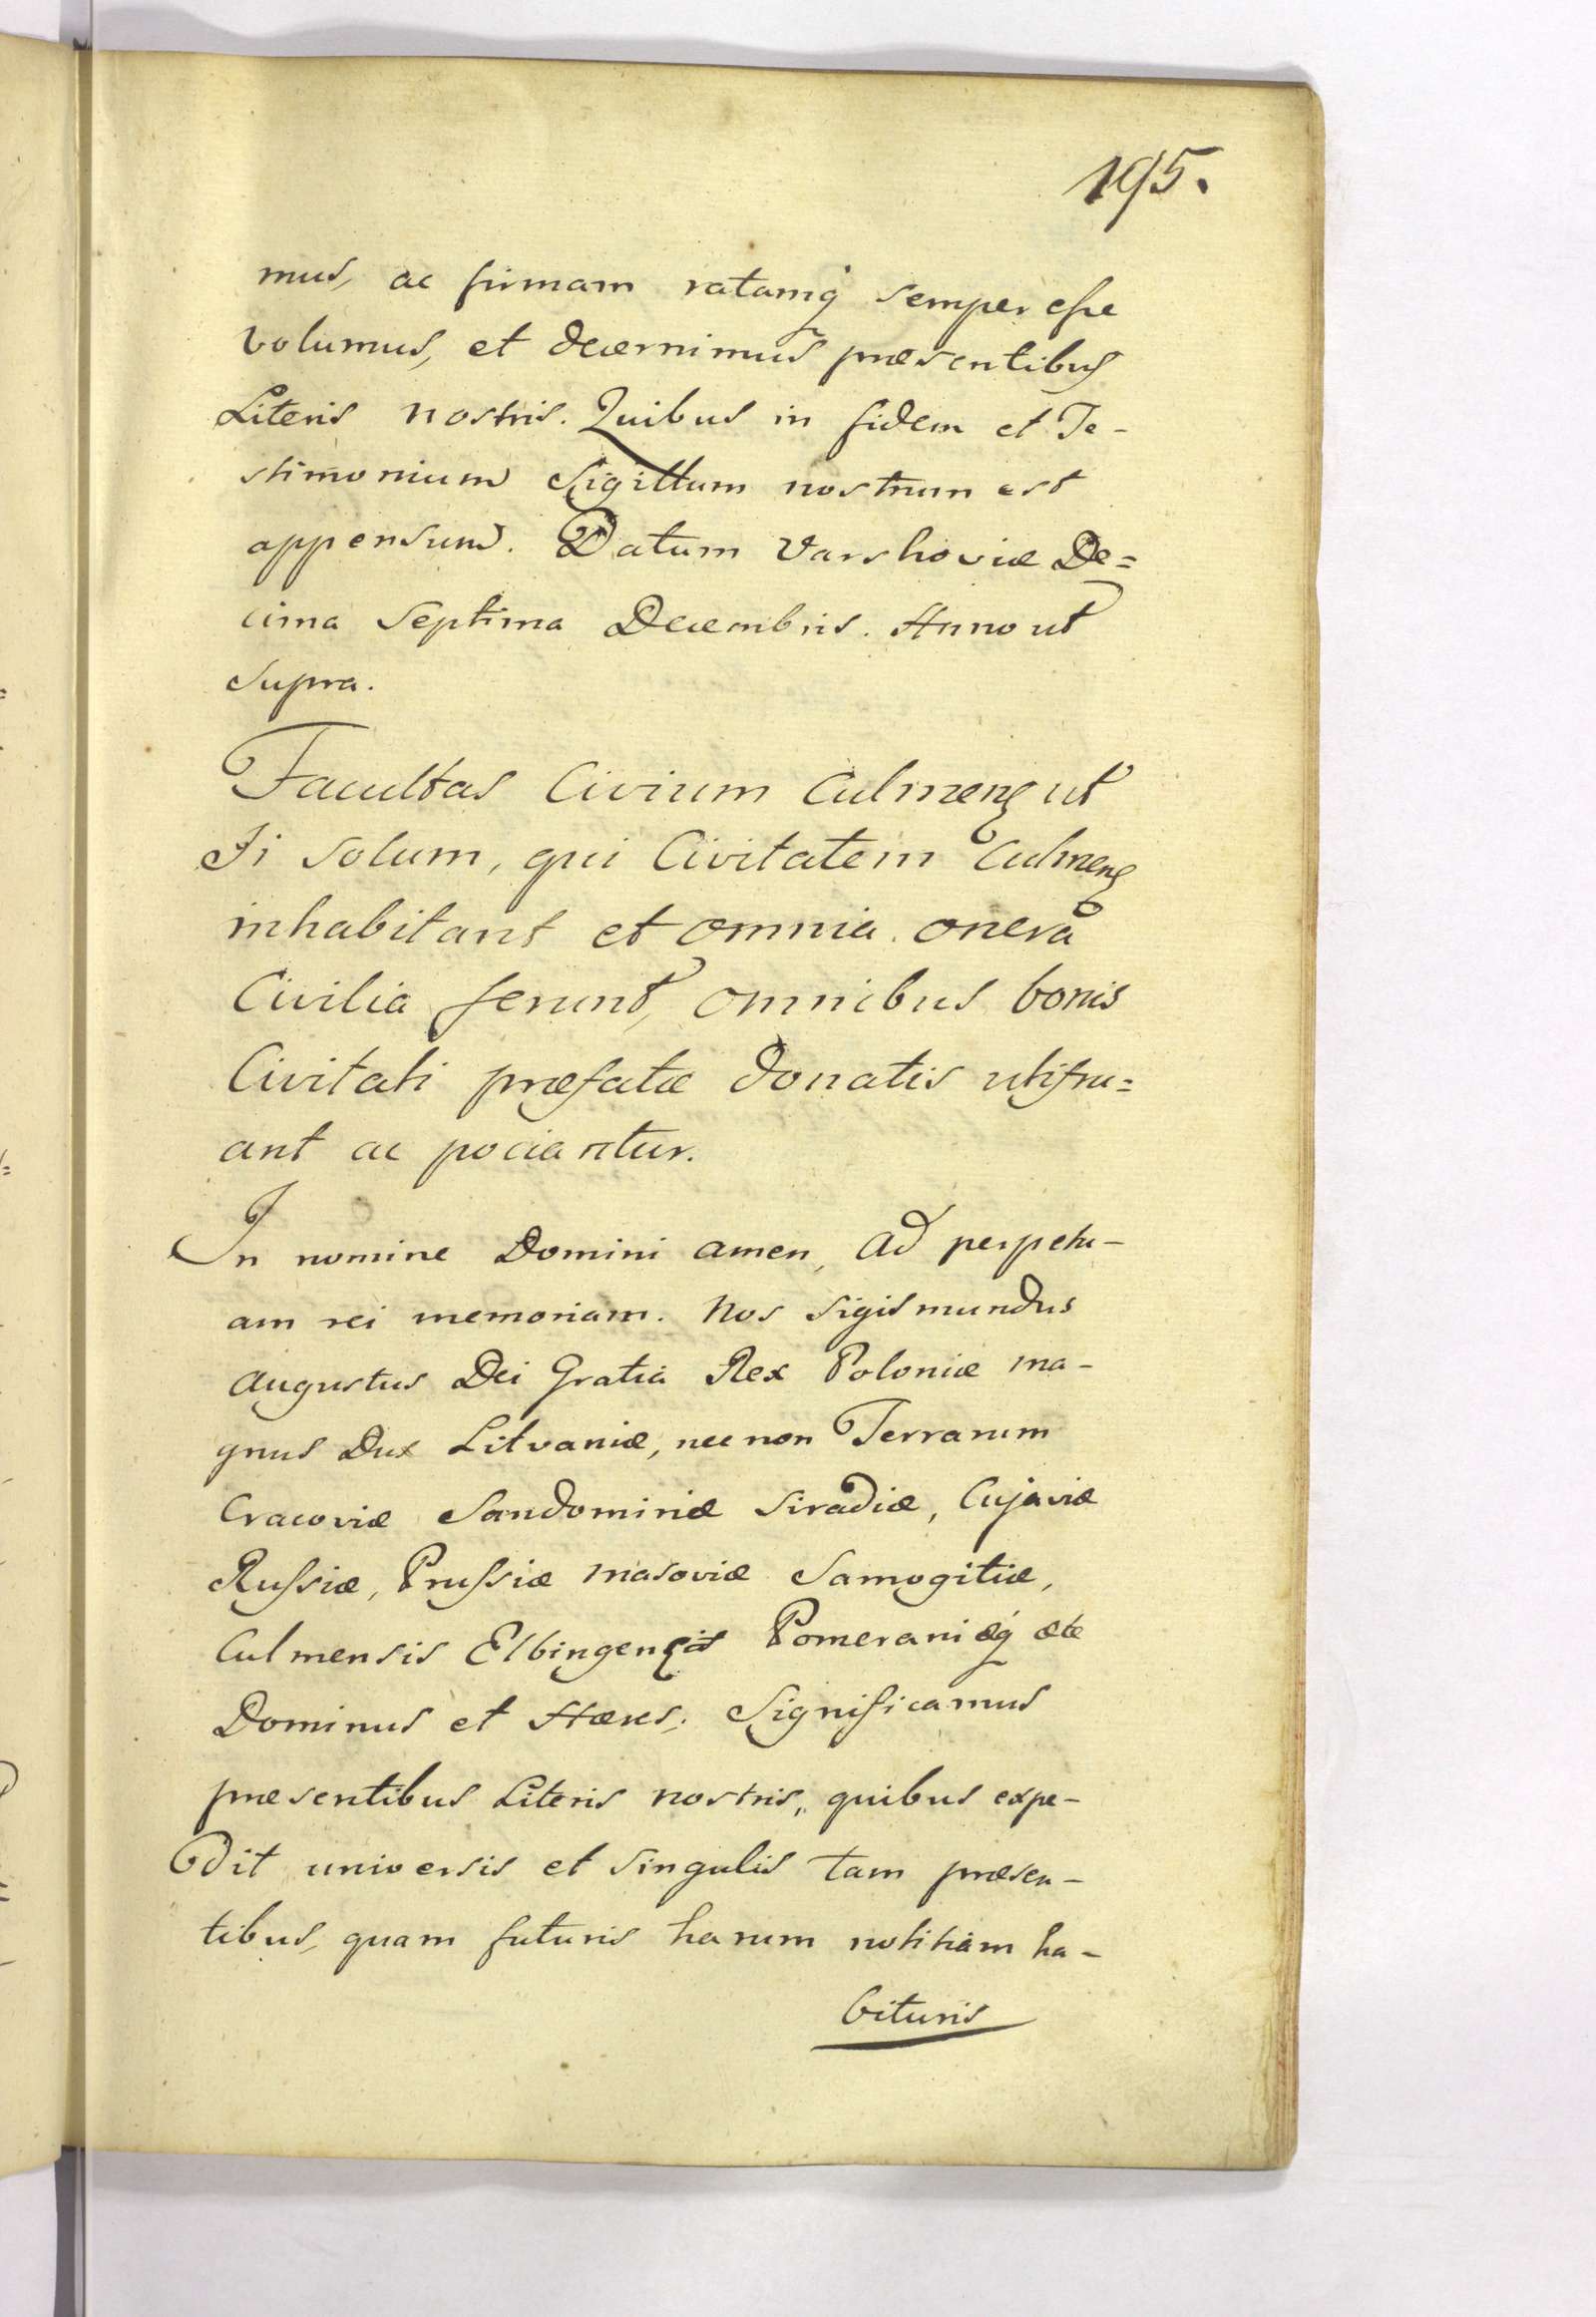 195.
mus, ac firmam ratamq́ semper eſse
volumus, et decernimus præsentibus
Literis nostris. Quibus in fidem et Te-
stimonium Sigillum nostrum est
appensum. Datum Varshoviæ De=
cima Septima Decembris. Anno ut
supra.
Facultas Civium Culmenſ ut
Ii solum, qui Civitatem Culmenſ
inhabitant et omnia onera
Civilia ferunt, omnibus bonis
Civitati præfatæ donatis utifru=
ant ac pociantur.
In nomine Domini amen, ad perpetu-
am rei memoriam. Nos Sigismundus
Augustus Dei Gratia Rex Poloniæ ma-
gnus Dux Litvaniæ, nec non Terrarum
Cracoviæ Sandomiriæ Siradiæ, Cujaviæ
Ruſsiæ, Pruſsiæ Masoviæ Samogitiæ,
Culmensis Elbingensis Pomeraniæq́ ætc
Dominus et Hæres. Significamus
præsentibus Literis nostris, quibus expe-
dit universis et singulis tam præsen-
tibus, quam futuris harum notitiam ha-
bituris